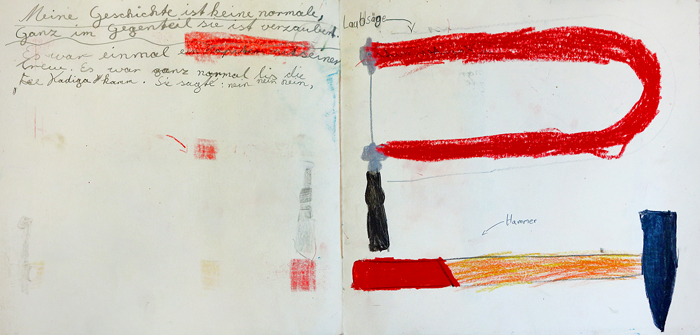 Meine Geschichte ist keine normale,
Ganz im Gegenteil sie ist verzaubert.
Es war einmal
Es war ganz normal bis die
kam. Sie sagte: nein nein nein,
Laubsäge
Hammer